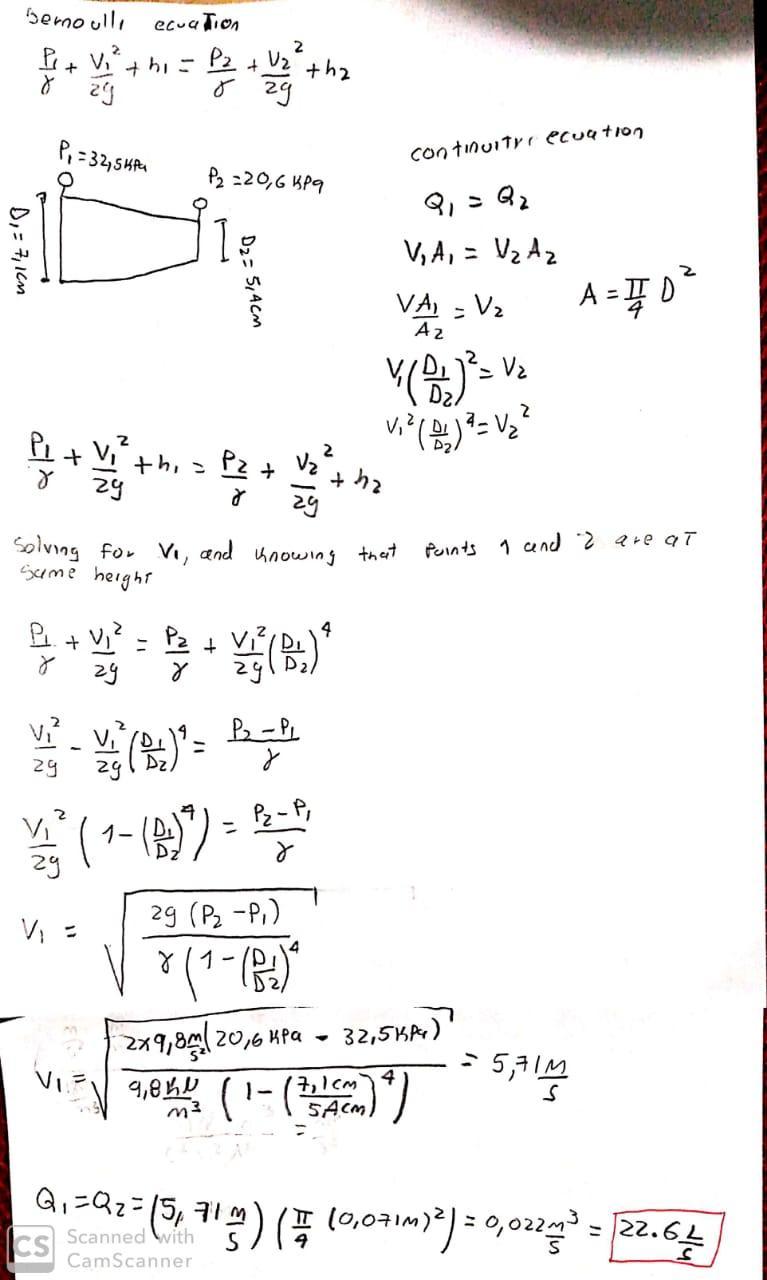 Bernoulli ecuation
P₁/γ + V₁²/2g + h₁ = P₂/γ + V₂²/2g + h₂
P₁ = 32,5 KPa
P₂ = 20,6 KPa
D₁ = 7,1cm
D₂ = 5,4cm
continuitri ecuation
Q₁ = Q₂
V₁A₁ = V₂A₂
VA₁/A₂ = V₂
A = π/4 D²
V₁(D₁/D₂)² = V₂
V₁²(D₁/D₂)⁴ = V₂²
P₁/γ + V₁²/2g + h₁ = P₂/γ + V₂²/2g + h₂
Solving for V₁, and knowing that points 1 and 2 are at
same height
P₁/γ + V₁²/2g = P₂/γ + V₁²/2g (D₁/D₂)⁴
V₁²/2g - V₁²/2g (D₁/D₂)⁴ = P₂-P₁/γ
V₁²/2g (1-(D₁/D₂)⁴) = P₂-P₁/γ
V₁ = √(2g (P₂-P₁) / γ(1-(D₁/D₂)⁴
V₁ = √(2x9,8m/s² (20,6 KPa - 32,5KPa) / 9,8KN/m³ (1-(7,1cm/5,4cm)⁴)) = 5,71 m/s
Q₁=Q₂= (5,71 m/s) (π/4 (0,071m)²) = 0,022 m³/s = 22.6 L/s
CS Scanned with
CamScanner